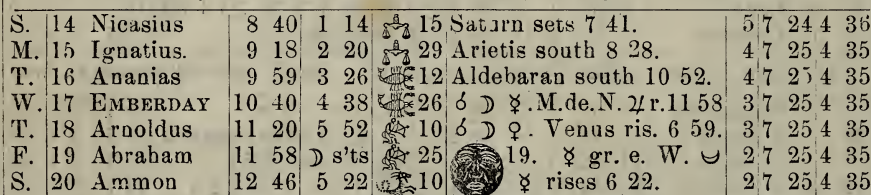 S. 14 Nicasius 8 40 1 14 15 Saturn sets 7 41. 5 7 24 4 36
M. 15 Ignatius. 9 18 2 20 29 Arietis south 8 28. 4 7 25 4 35
T. 16 Ananias 9 59 3 26 12 Aldebaran south 10 52. 4 7 25 4 35
W. 17 EMBERDAY 10 40 4 38 26 ☌ ☽ ☿ .M.de.N. ♃ r.11 58 3 7 25 4 35
T. 18 Arnoldus 11 20 5 52 10 ☌ ☽ ♀ . Venus ris. 6 59. 3 7 25 4 35
F. 19 Abraham 11 58 ☽ s'ts 25 19. ☿ gr. e. W. 2 7 25 4 35
S. 20 Ammon 12 46 5 22 10 ☿ rises 6 22. 2 7 25 4 35